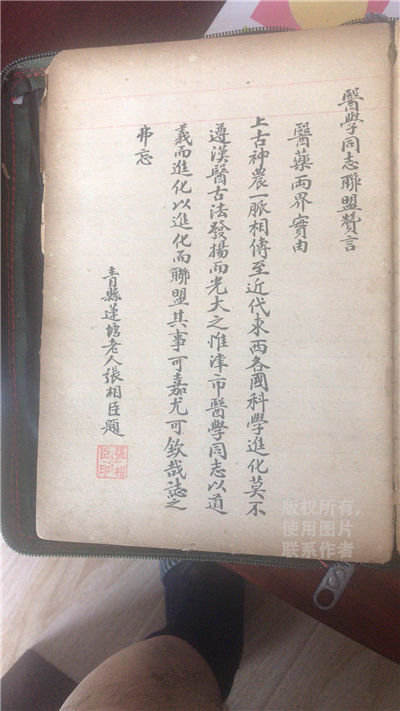 醫學同志聯盟贊言
醫藥兩界實由
上古神農一脈相傳至近代東西各國科學進化莫不
遵漢醫古法發揚而光大之惟津市醫學同志以道
義而進化以進化而聯盟其事可嘉尤可欽哉誌之
弗忘
青縣蓮塘老人張相臣題
張相
臣印
版权所有,
使用图片
联系作者